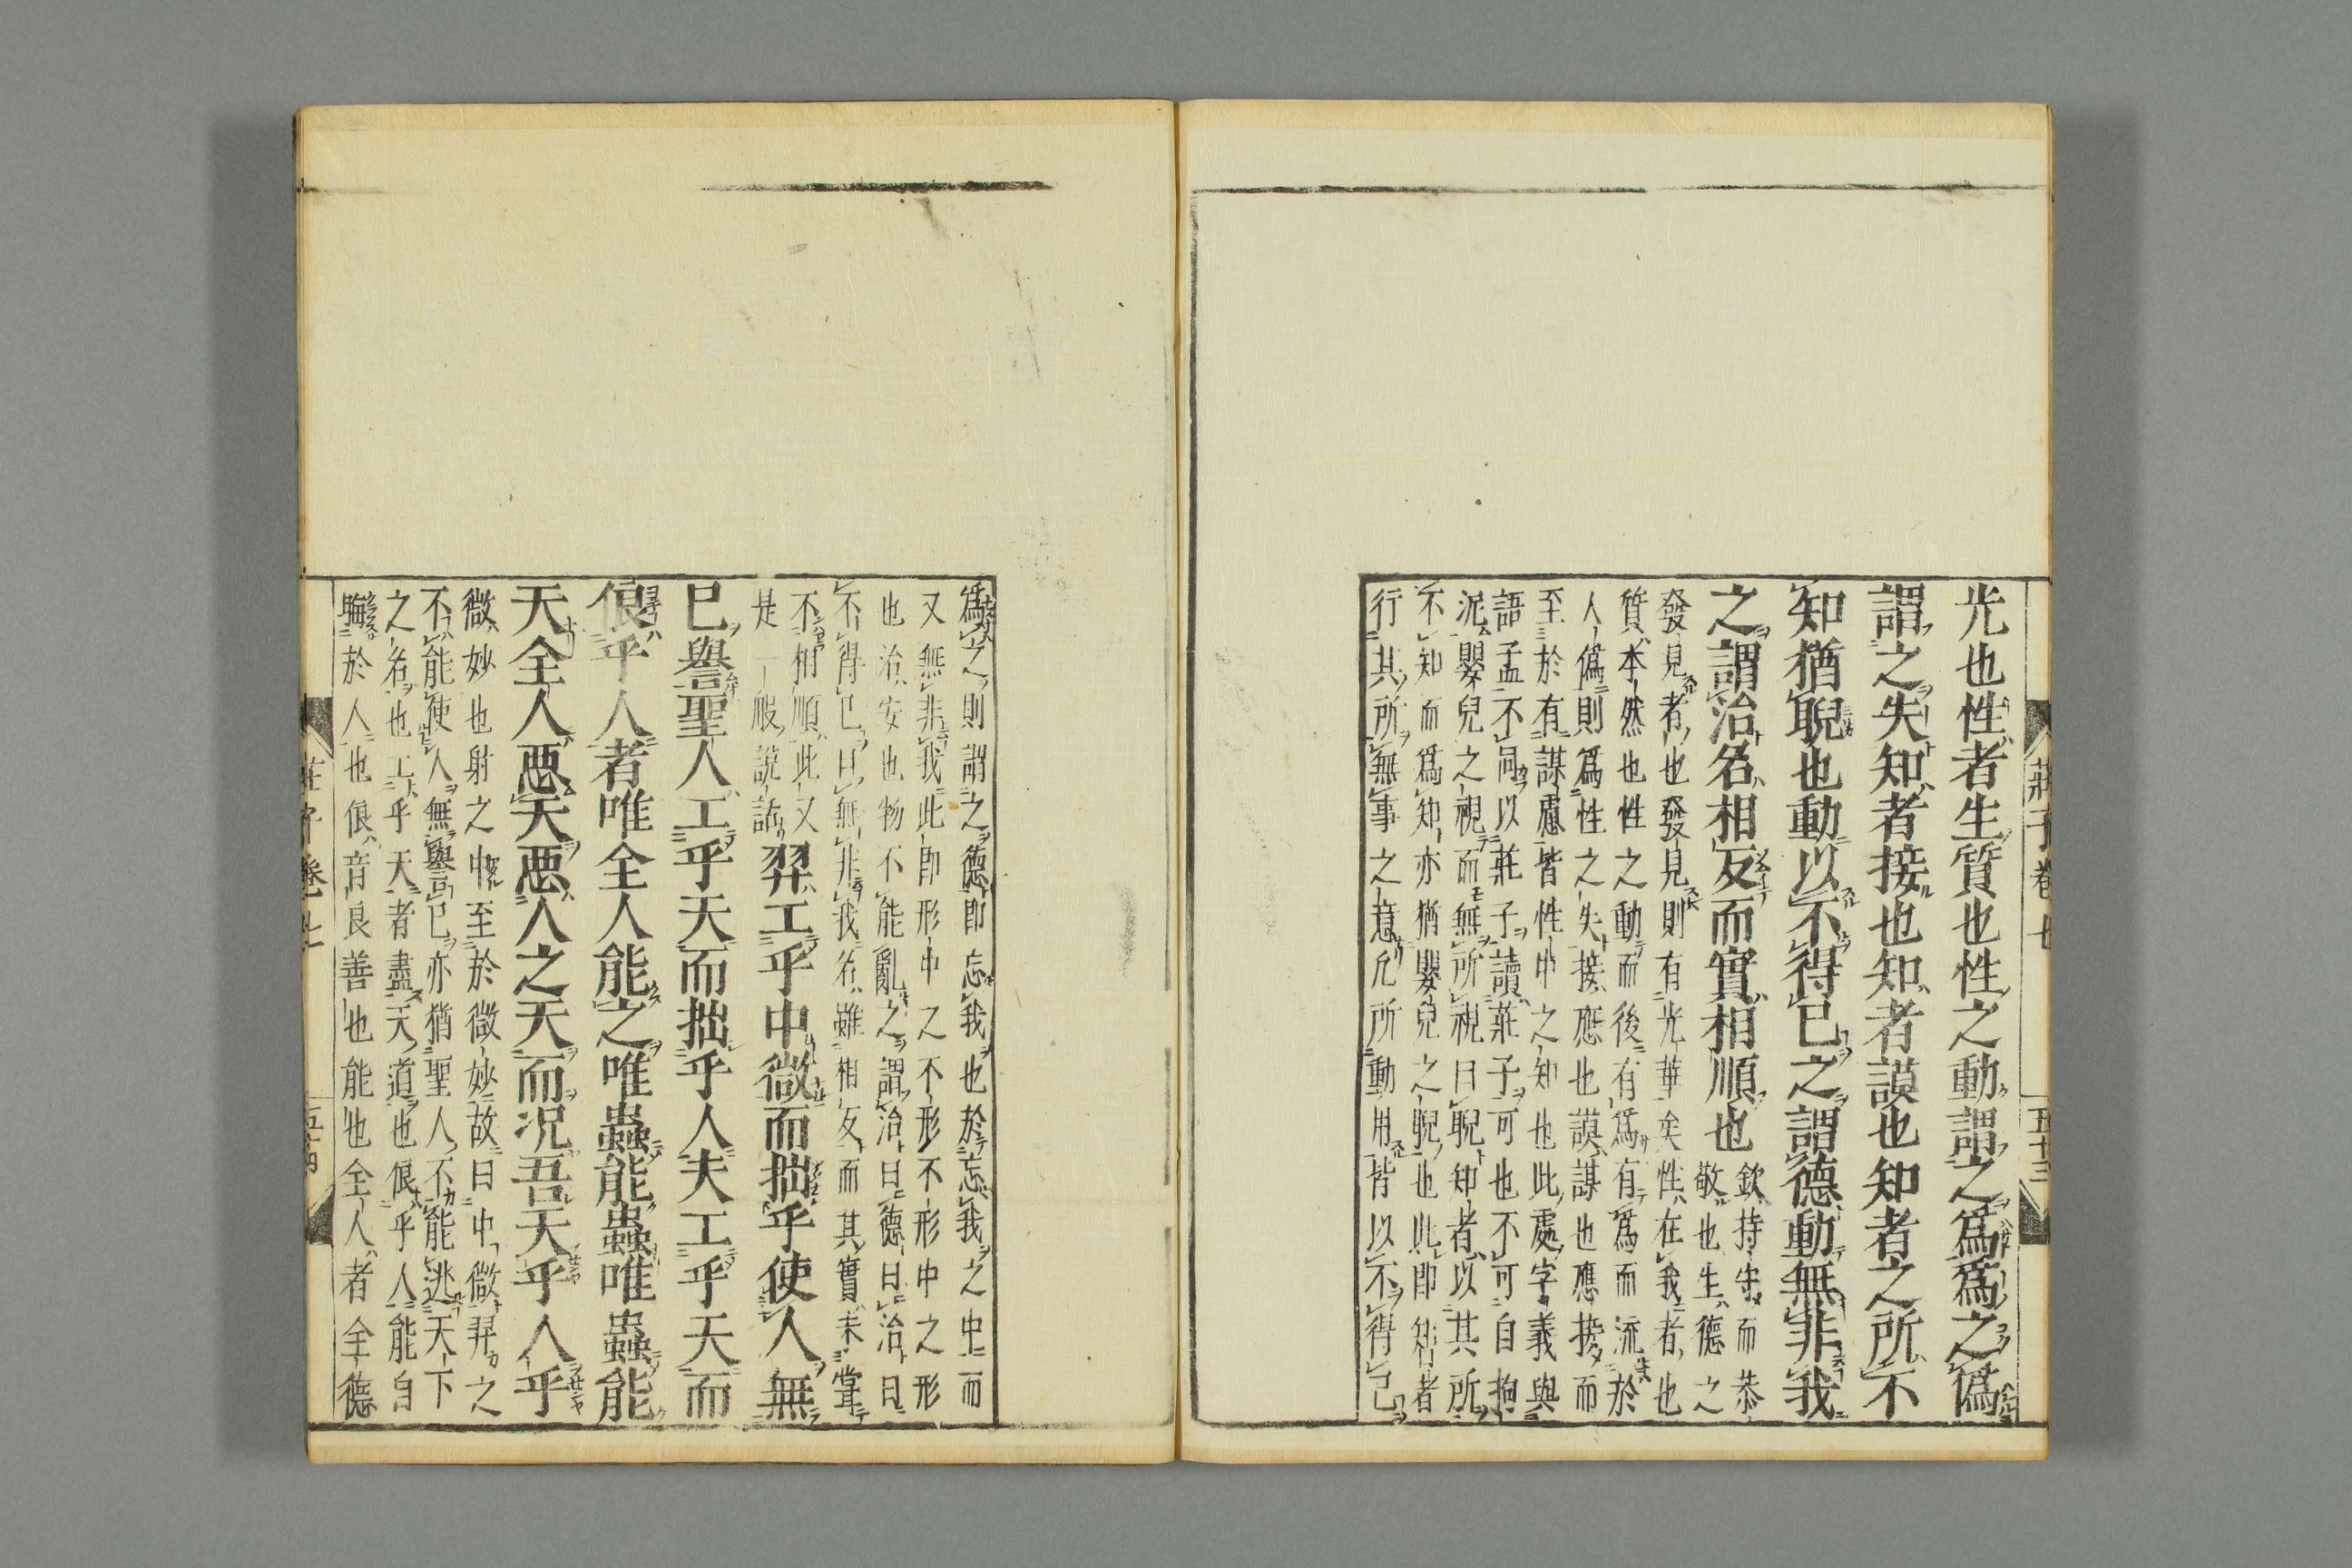 莊子卷七
五十三
光也性者生質也性之動謂之爲爲之僞
謂之失知者接也知者謨也知者之所不
知猶睨也動以不得已之謂德動無非我
之謂治名相反而實相順也
欽持守而恭
敬也生德之
發見者也發見則有光華矣性在我者也
質本然也性之動而後有爲有爲而流於
人僞則爲性之失接應也謨謀也應接而
至於有謀慮皆性中之知也此處字義與
語孟不同以莊子讀莊子可也不可自拘
泥嬰兒之視而無所視曰睨知者以其所
不知而爲知亦猶嬰兒之睨也此即智者
行其所無事之意凢所動用皆以不得已
爲之則謂之德即忘我也於忘我之中而
又無非我此即形中之不形不形中之形
也治安也物不能亂之謂治曰德曰治曰
不得已曰無非我名雖相反而其實未嘗
不相順此又
是一般說話
羿工乎中微而拙乎使人無
已譽聖人工乎天而拙乎人夫工乎天而
俍乎人者唯全人能之唯蟲能蟲唯蟲能
天全人惡天惡人之天而况吾天乎人乎
微妙也射之中至於微妙故曰中微羿之
不能使人無譽已亦猶聖人不能逃天下
之名也工乎天者盡天道也俍乎人能自
晦於人也俍音良善也能也全人者全德
莊子卷七
五十四